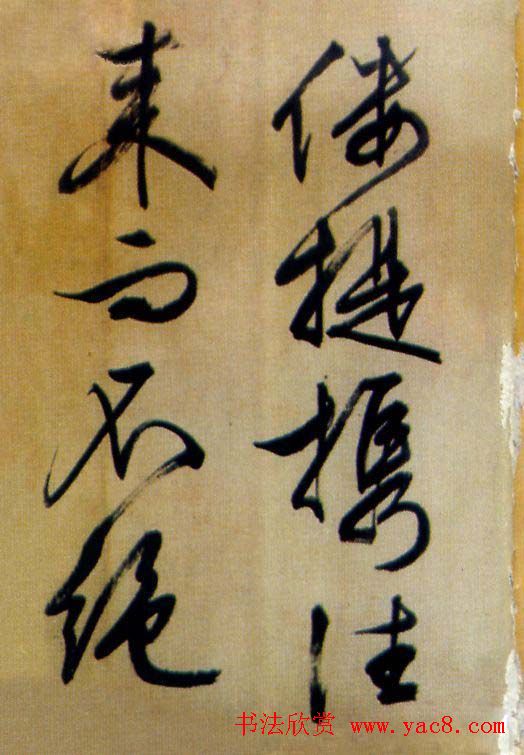 偻提携往
来而不绝
书法欣赏 www.yac8.com